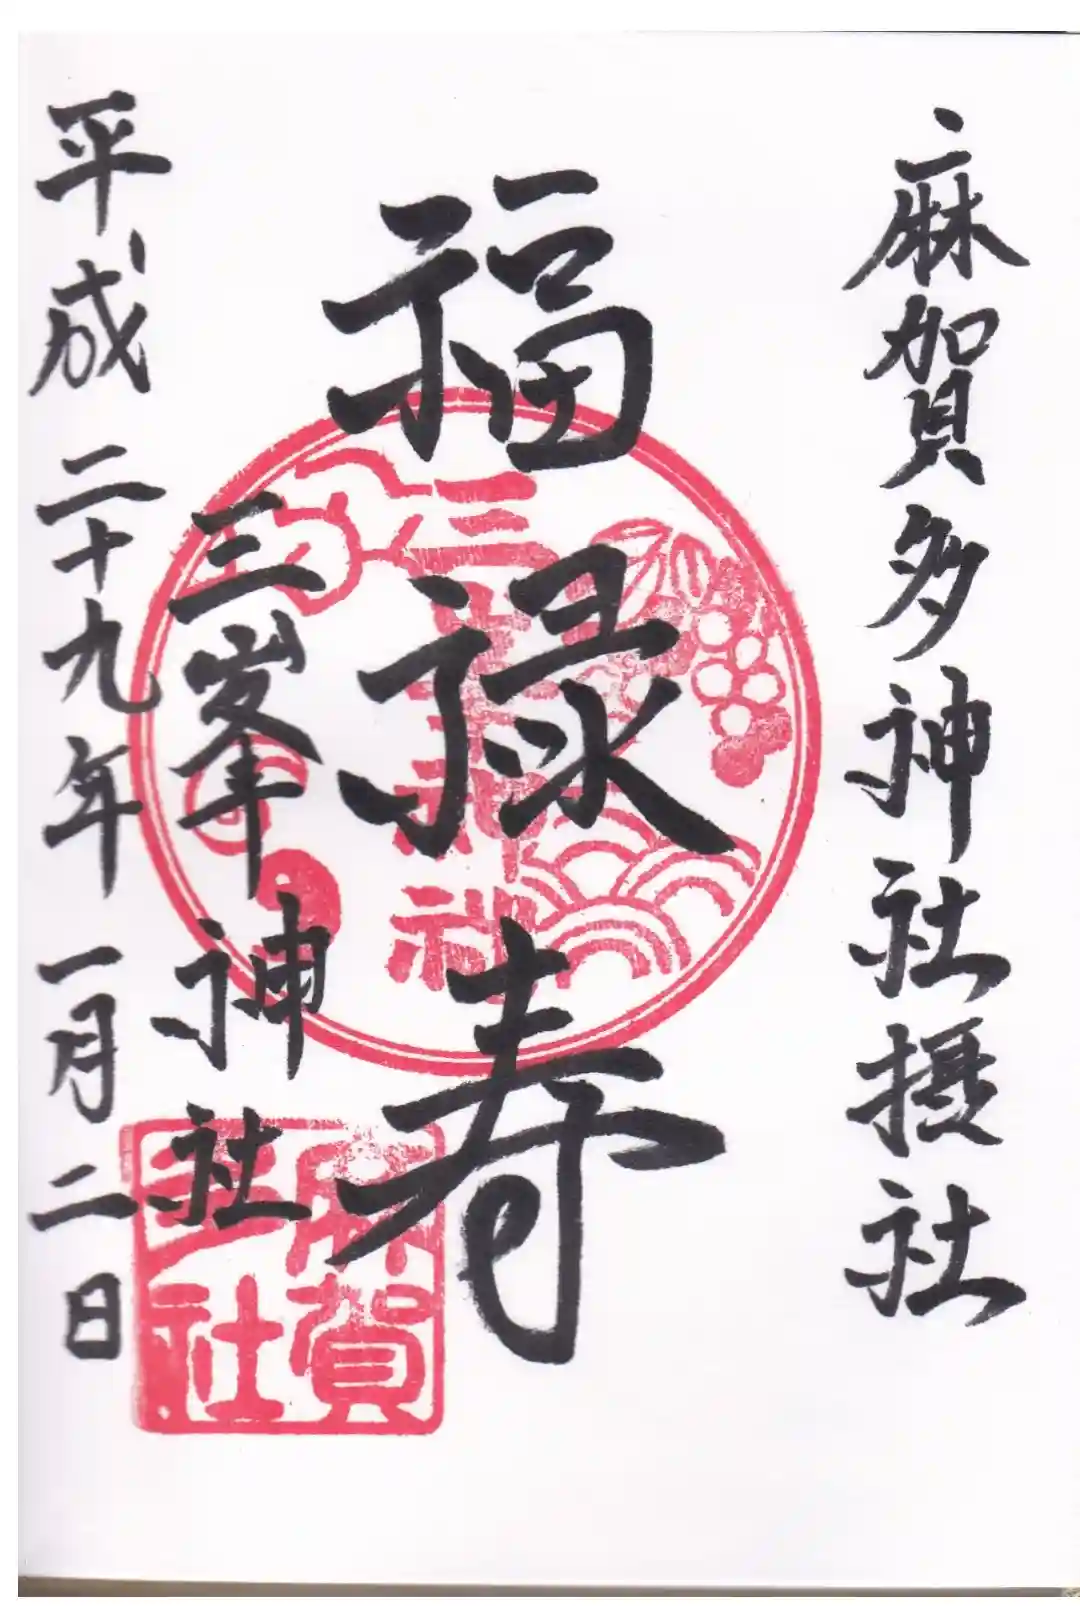 麻賀多神社摂社
福禄寿
三峯神社
平成二十九年一月二日